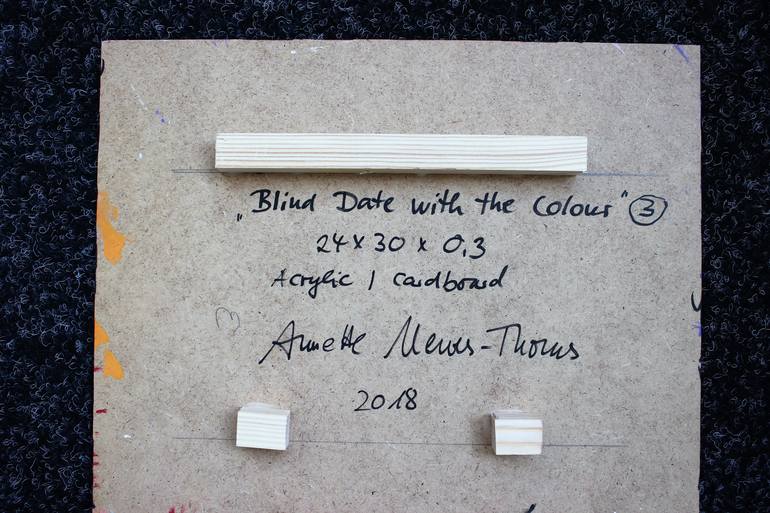 „Blind Date with the Colour“ ③
24 x 30 x 0,3
Acrylic / Cardboard
3
Annette Mewes-Thoms
2018